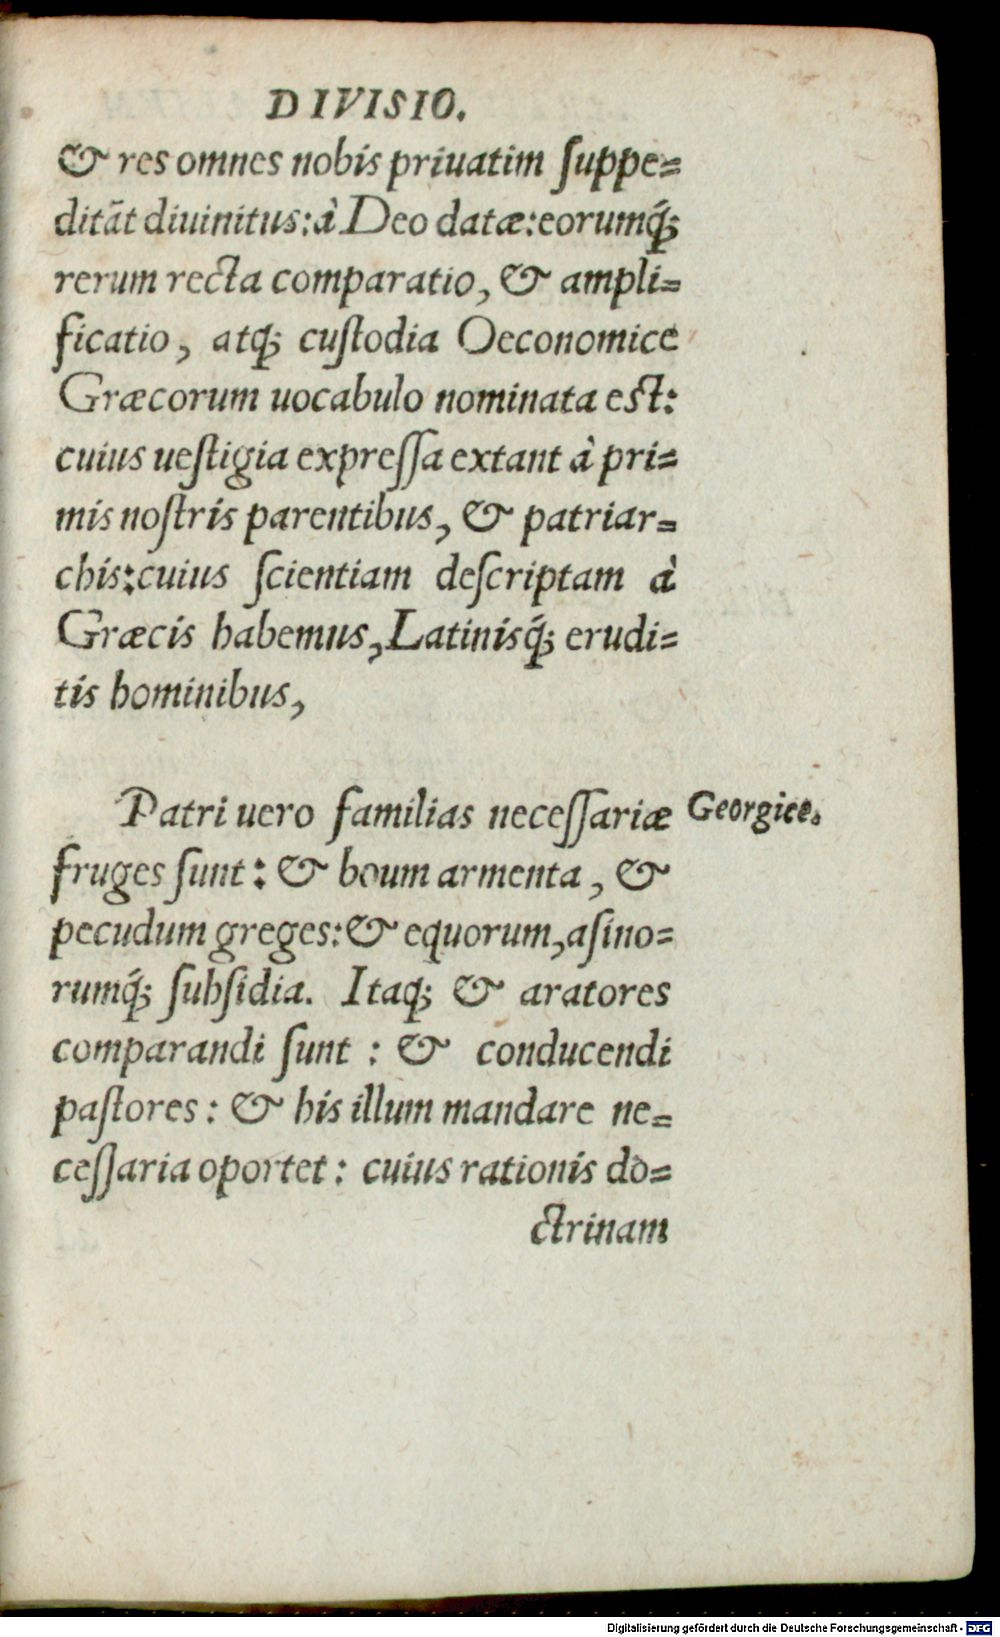 DIVISIO.
& res omnes nobis priuatim ſuppe=
ditāt diuinitus: à Deo datæ: eorumq́;
rerum recta comparatio, & ampli=
ficatio, atq; cuſtodia Oeconomice
Græcorum uocabulo nominata eſt:
cuius ueſtigia expreſſa extant à pri=
mis noſtris parentibus, & patriar=
chis: cuius ſcientiam deſcriptam à
Græcis habemus, Latinisq́; erudi=
tis hominibus,
Patri uero familias neceſſariæ
Georgice.
fruges ſunt: & boum armenta, &
pecudum greges: & equorum, aſino=
rumq́; ſubſidia. Itaq; & aratores
comparandi ſunt: & conducendi
paſtores: & his illum mandare ne=
ceſſaria oportet: cuius rationis do=
ctrinam
Digitalisierung gefördert durch die Deutsche Forschungsgemeinschaft - DFG